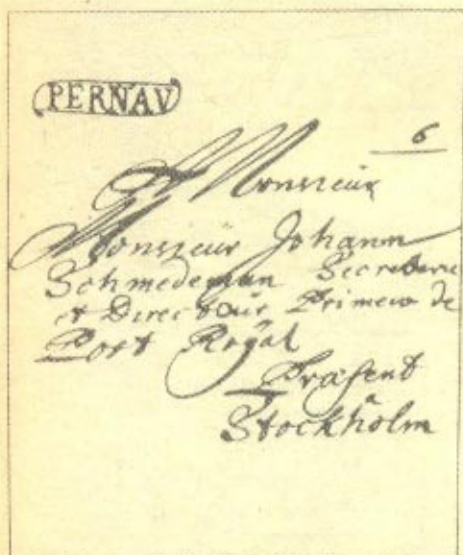 PERNAV
6
A Monsieur
Monsieur Johann
Schmedeman Secretaire
et Directeur Primew de
Post Royal
Præsent
a
Stockholm